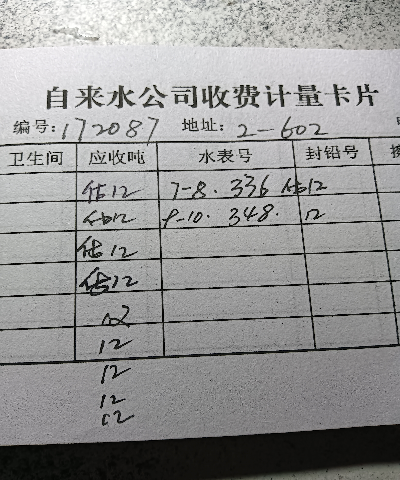 自来水公司收费计量卡片
编号:172087 地址:2-602
卫生间 应收吨 水表号 封铅号
估12 7-8. 336 估12
估12 9-10. 348. 12
估12
估12
12
12
12
12
12